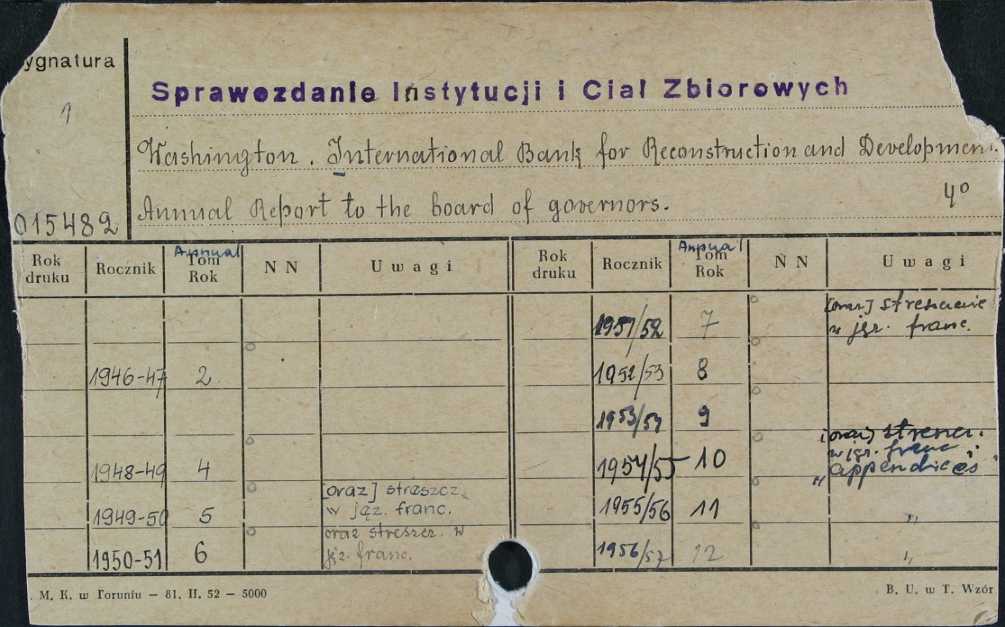 ygnatura
1
Sprawozdanie Instytucji i Ciał Zbiorowych
Washington. International Bank for Reconstruction and Development.
015482
Annual Report to the board of governors. 4°
Rok druku Rocznik Annual Tom Rok N N Uwagi
1946-47 2
1948-49 4
1949-50 5 [oraz] streszcz. w jęz. franc.
1950-51 6 oraz streszcz. w jęz. franc.
Rok druku Rocznik Annual Tom Rok N N Uwagi
1951/52 7 [oraz] streszczenie w jęz. franc.
1952/53 8
1953/54 9
1954/55 10 [oraz] streszcz. w jęz. franc. i „appendices”
1955/56 11 "
1956/57 12 "
M. K. w Toruniu — 81. II. 52 — 5000
B. U. w T. Wzór